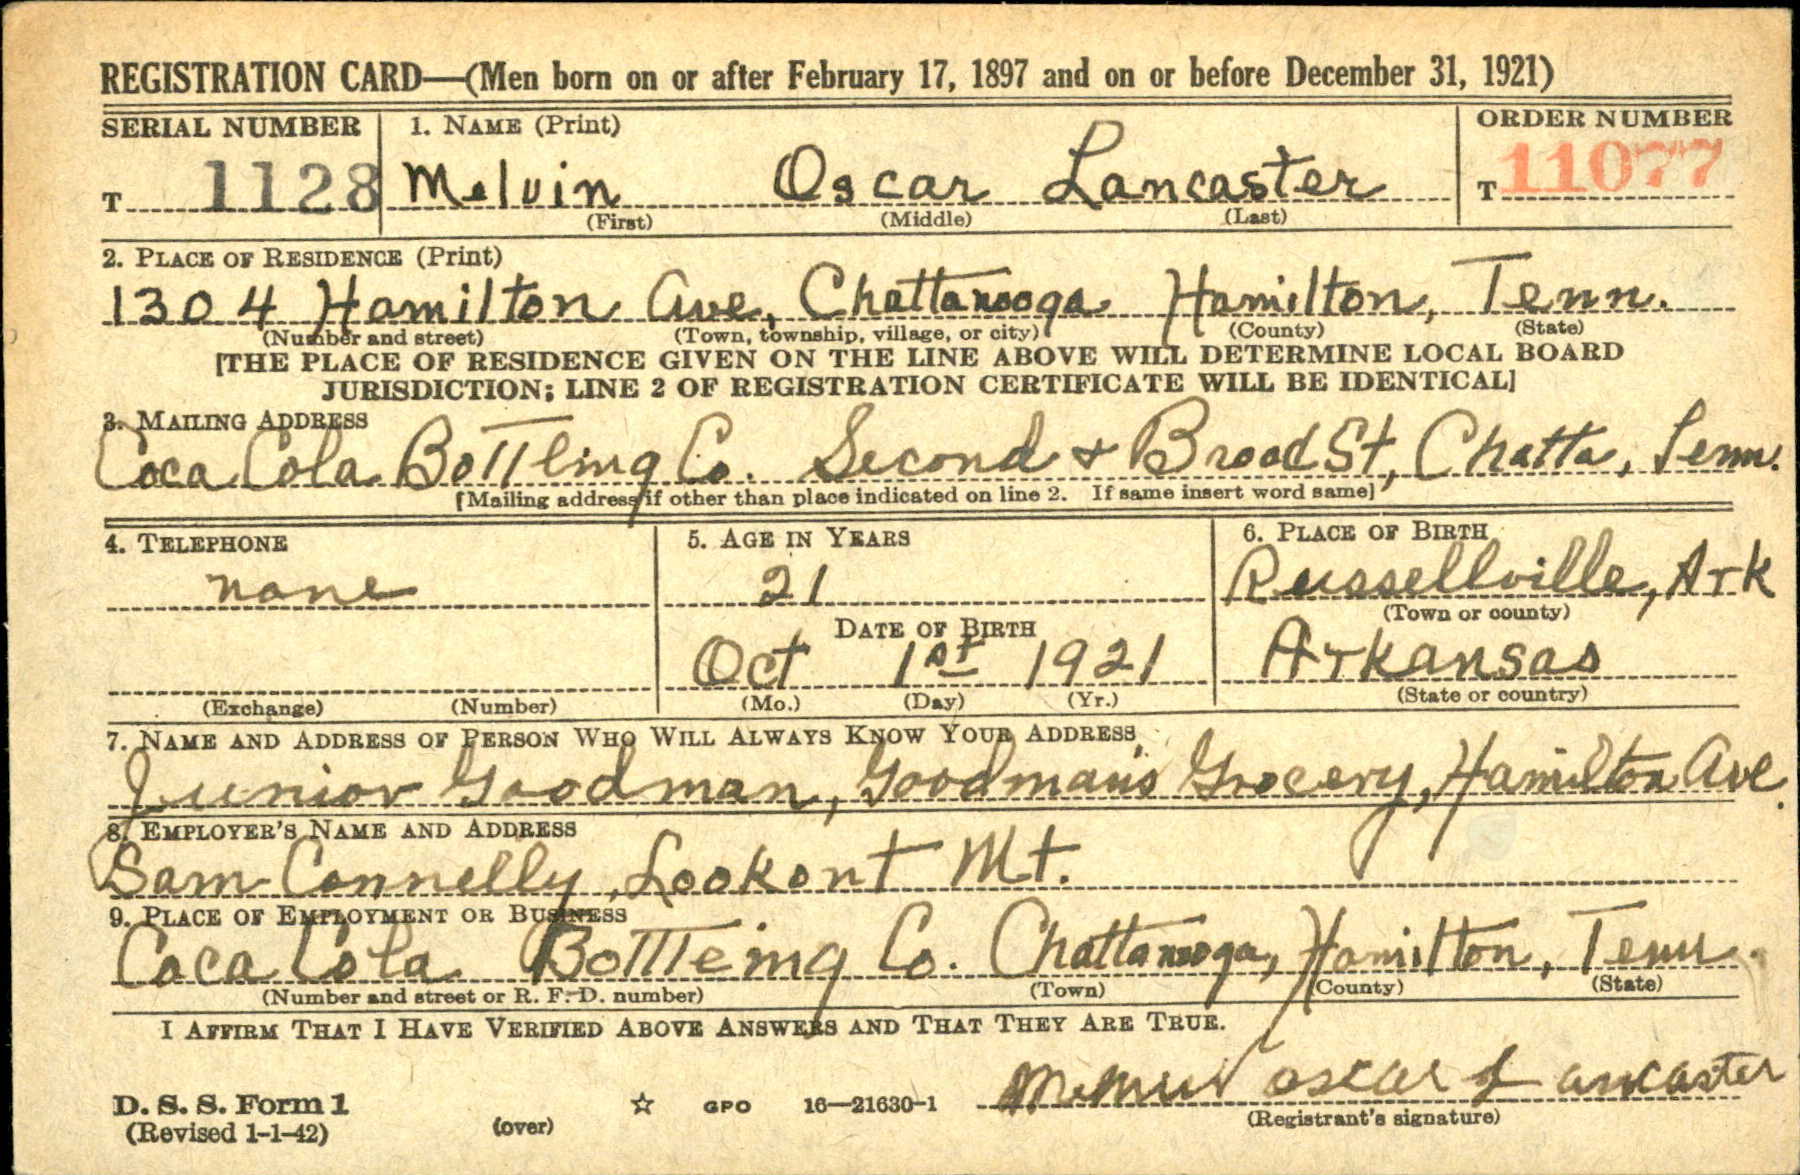 REGISTRATION CARD—(Men born on or after February 17, 1897 and on or before December 31, 1921)
SERIAL NUMBER 1. NAME (Print) ORDER NUMBER
T 1128 Melvin Oscar Lancaster T 11077
(First) (Middle) (Last)
2. PLACE OF RESIDENCE (Print)
1304 Hamilton Ave, Chattanooga Hamilton, Tenn.
(Number and street) (Town, township, village, or city) (County) (State)
[THE PLACE OF RESIDENCE GIVEN ON THE LINE ABOVE WILL DETERMINE LOCAL BOARD
JURISDICTION; LINE 2 OF REGISTRATION CERTIFICATE WILL BE IDENTICAL]
3. MAILING ADDRESS
Coca Cola Bottling Co. Second + Broad St, Chatta, Tenn.
[Mailing address if other than place indicated on line 2. If same insert word same]
4. TELEPHONE 5. AGE IN YEARS 6. PLACE OF BIRTH
none 21 Russellville, Ark
(Town or county)
DATE OF BIRTH
Oct 1st 1921 Arkansas
(Exchange) (Number) (Mo.) (Day) (Yr.) (State or country)
7. NAME AND ADDRESS OF PERSON WHO WILL ALWAYS KNOW YOUR ADDRESS
Junior Goodman, Goodman's Grocery, Hamilton Ave.
8. EMPLOYER'S NAME AND ADDRESS
Sam Connelly, Lookout Mt.
9. PLACE OF EMPLOYMENT OR BUSINESS
Coca Cola Bottleing Co. Chattanooga, Hamilton, Tenn.
(Number and street or R. F. D. number) (Town) (County) (State)
I AFFIRM THAT I HAVE VERIFIED ABOVE ANSWERS AND THAT THEY ARE TRUE.
Melvin oscar Lancaster
D. S. S. Form 1 GPO 16—21630-1 (Registrant's signature)
(Revised 1-1-42) (over)